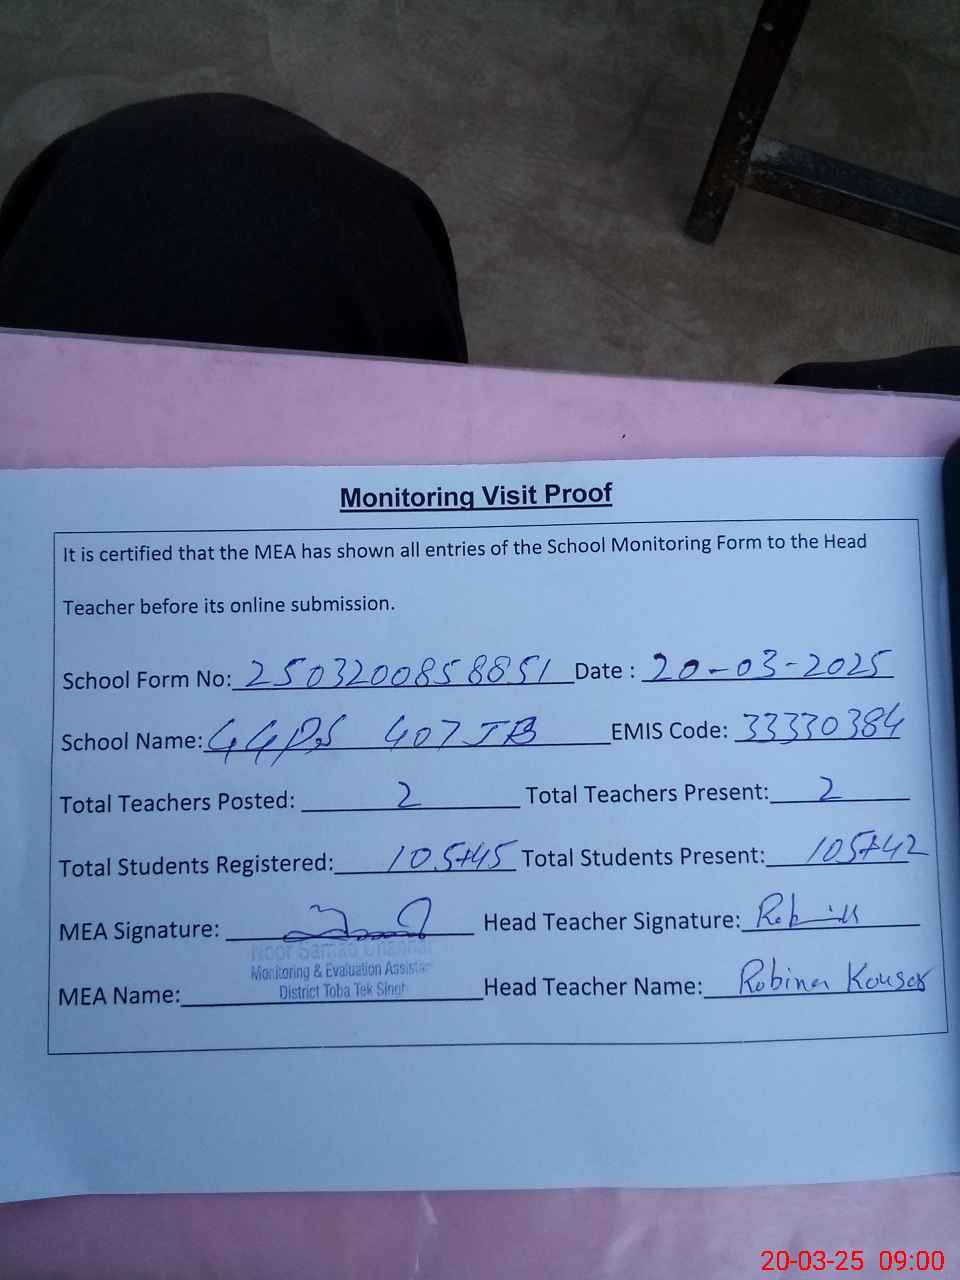 Monitoring Visit Proof
It is certified that the MEA has shown all entries of the School Monitoring Form to the Head
Teacher before its online submission.
School Form No: 2503200858851 Date : 20-03-2025
School Name: GGPS 407 JB EMIS Code: 33330384
Total Teachers Posted: 2 Total Teachers Present: 2
Total Students Registered: 105+45 Total Students Present: 105+42
MEA Signature: Head Teacher Signature:
Noor Samad
Monitoring & Evaluation Assista
District Toba Tek Singh
MEA Name: Head Teacher Name: Robina Kousar
20-03-25 09:00